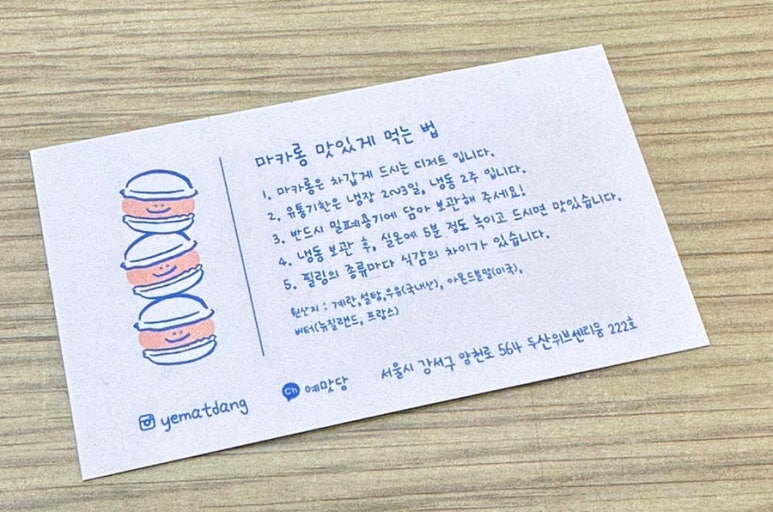 마카롱 맛있게 먹는 법
1. 마카롱은 차갑게 드시는 디저트 입니다.
2. 유통기한은 냉장 2~3일, 냉동 2주 입니다.
3. 반드시 밀폐용기에 담아 보관해 주세요!
4. 냉동 보관 후, 실온에 5분 정도 녹이고 드시면 맛있습니다.
5. 필링의 종류마다 식감의 차이가 있습니다.
원산지 : 계란,설탕,우유(국내산), 아몬드분말(미국),
버터(뉴질랜드, 프랑스)
yematdang
Ch 예맛당
서울시 강서구 양천로 564 두산위브센티움 222호